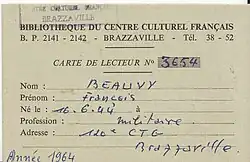 CENTRE CULTUREL FRANÇAIS
BRAZZAVILLE
BIBLIOTHEQUE DU CENTRE CULTUREL FRANÇAIS
B. P. 2141 - 2142 - BRAZZAVILLE - Tél. 38 - 52
CARTE DE LECTEUR No 3654
Nom : BEAUVY
Prénom : François
Né le : 16.6.44 à
Profession : militaire
Adresse : 110e CTG
Brazzaville.
Année 1964